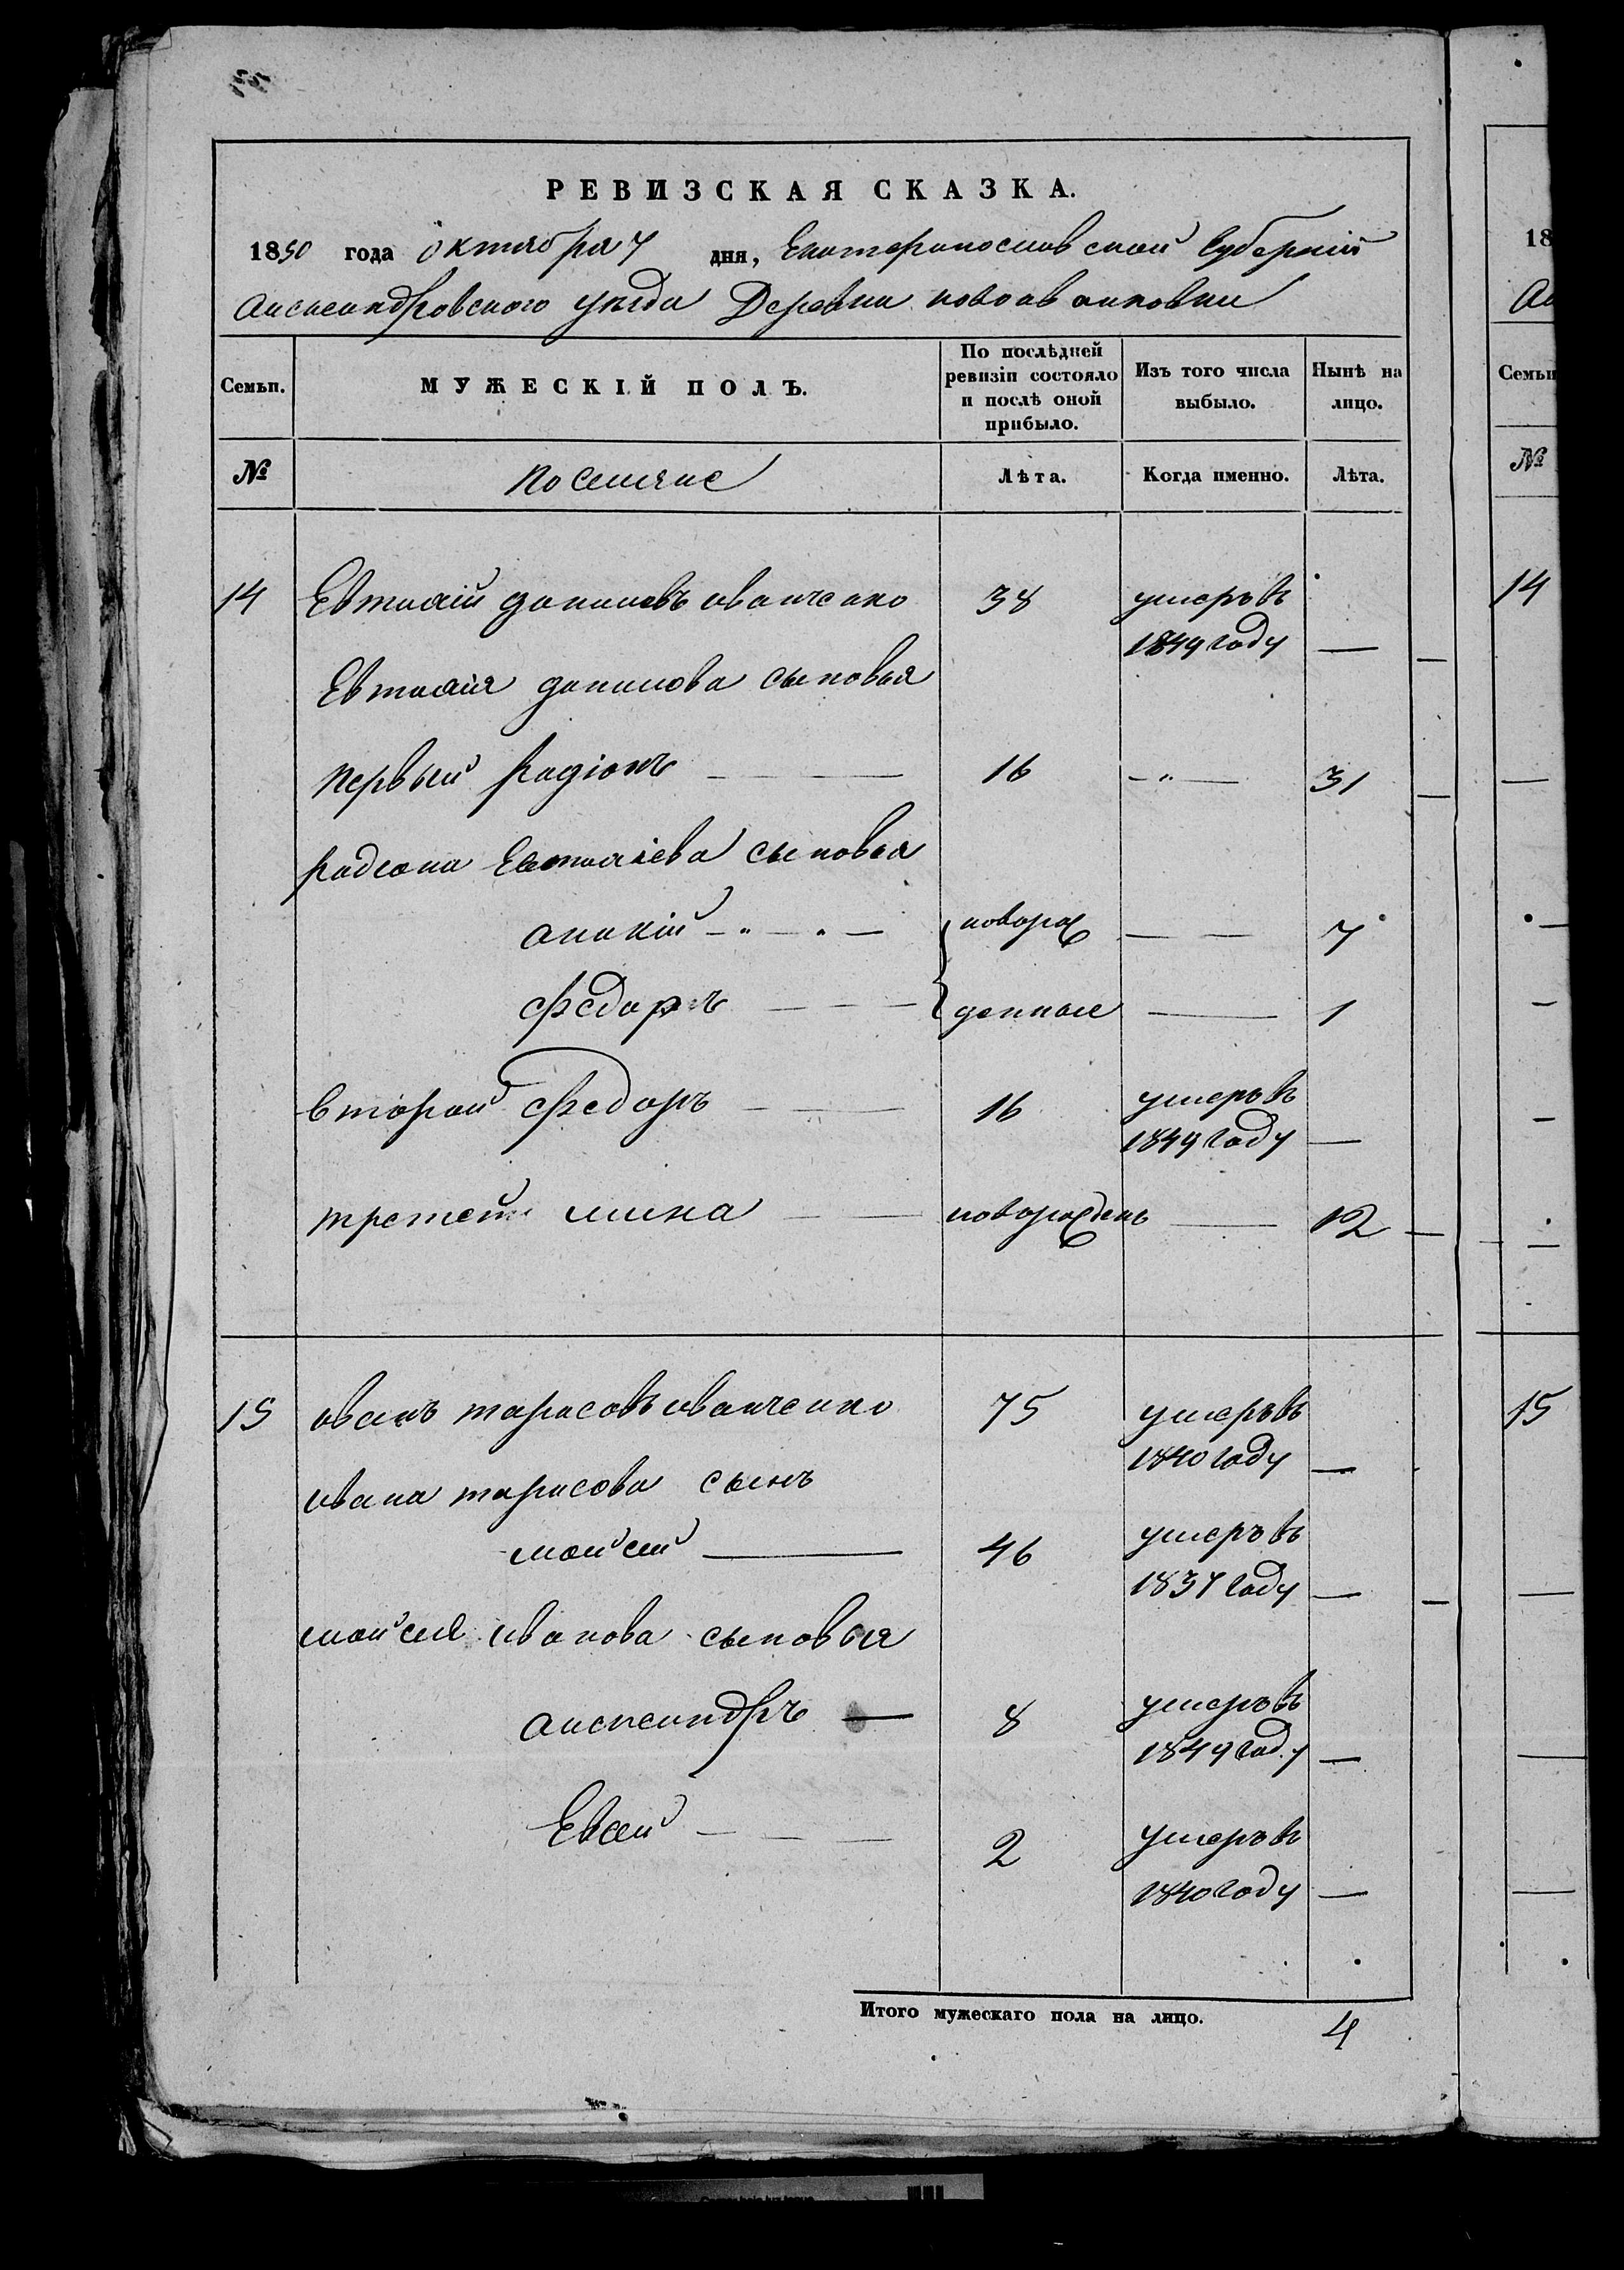 РЕВИЗСКАЯ СКАЗКА.
1850 года октября 7 дня, Екатеринославской Губерніи
Александровского уезда Деревни новоивановки
Семьи. МУЖЕСКІЙ ПОЛЪ. По послѣдней ревизіи состояло и послѣ оной прибыло. Изъ того числа выбыло. Нынѣ на лицо.
№ Поселяне Лѣта. Когда именно. Лѣта.
14 Евтихій даниловъ иванченко 38 умеръ въ
1849 году —
Евтихія данилова сыновья
первый Радіонъ — — 16 —"— 31
радиона Евтихіева сыновья
ананій —"—"— новорож — — 7
Федоръ — — — денные — 1
второй Федоръ — — 16 умеръ въ
1849 году —
третей мина — — новорожденъ — 12
15 иванъ тарасовъ иванченко 75 умеръ въ
1840 году —
ивана тарасова сынъ
мойсей — 46 умеръ въ
1837 году —
мойсея иванова сыновья
александръ — 8 умеръ въ
1849 году —
Евсей — — — 2 умеръ въ
1840 году —
Итого мужескаго пола на лицо. 4
18
Ал
Семьи
№
14
15